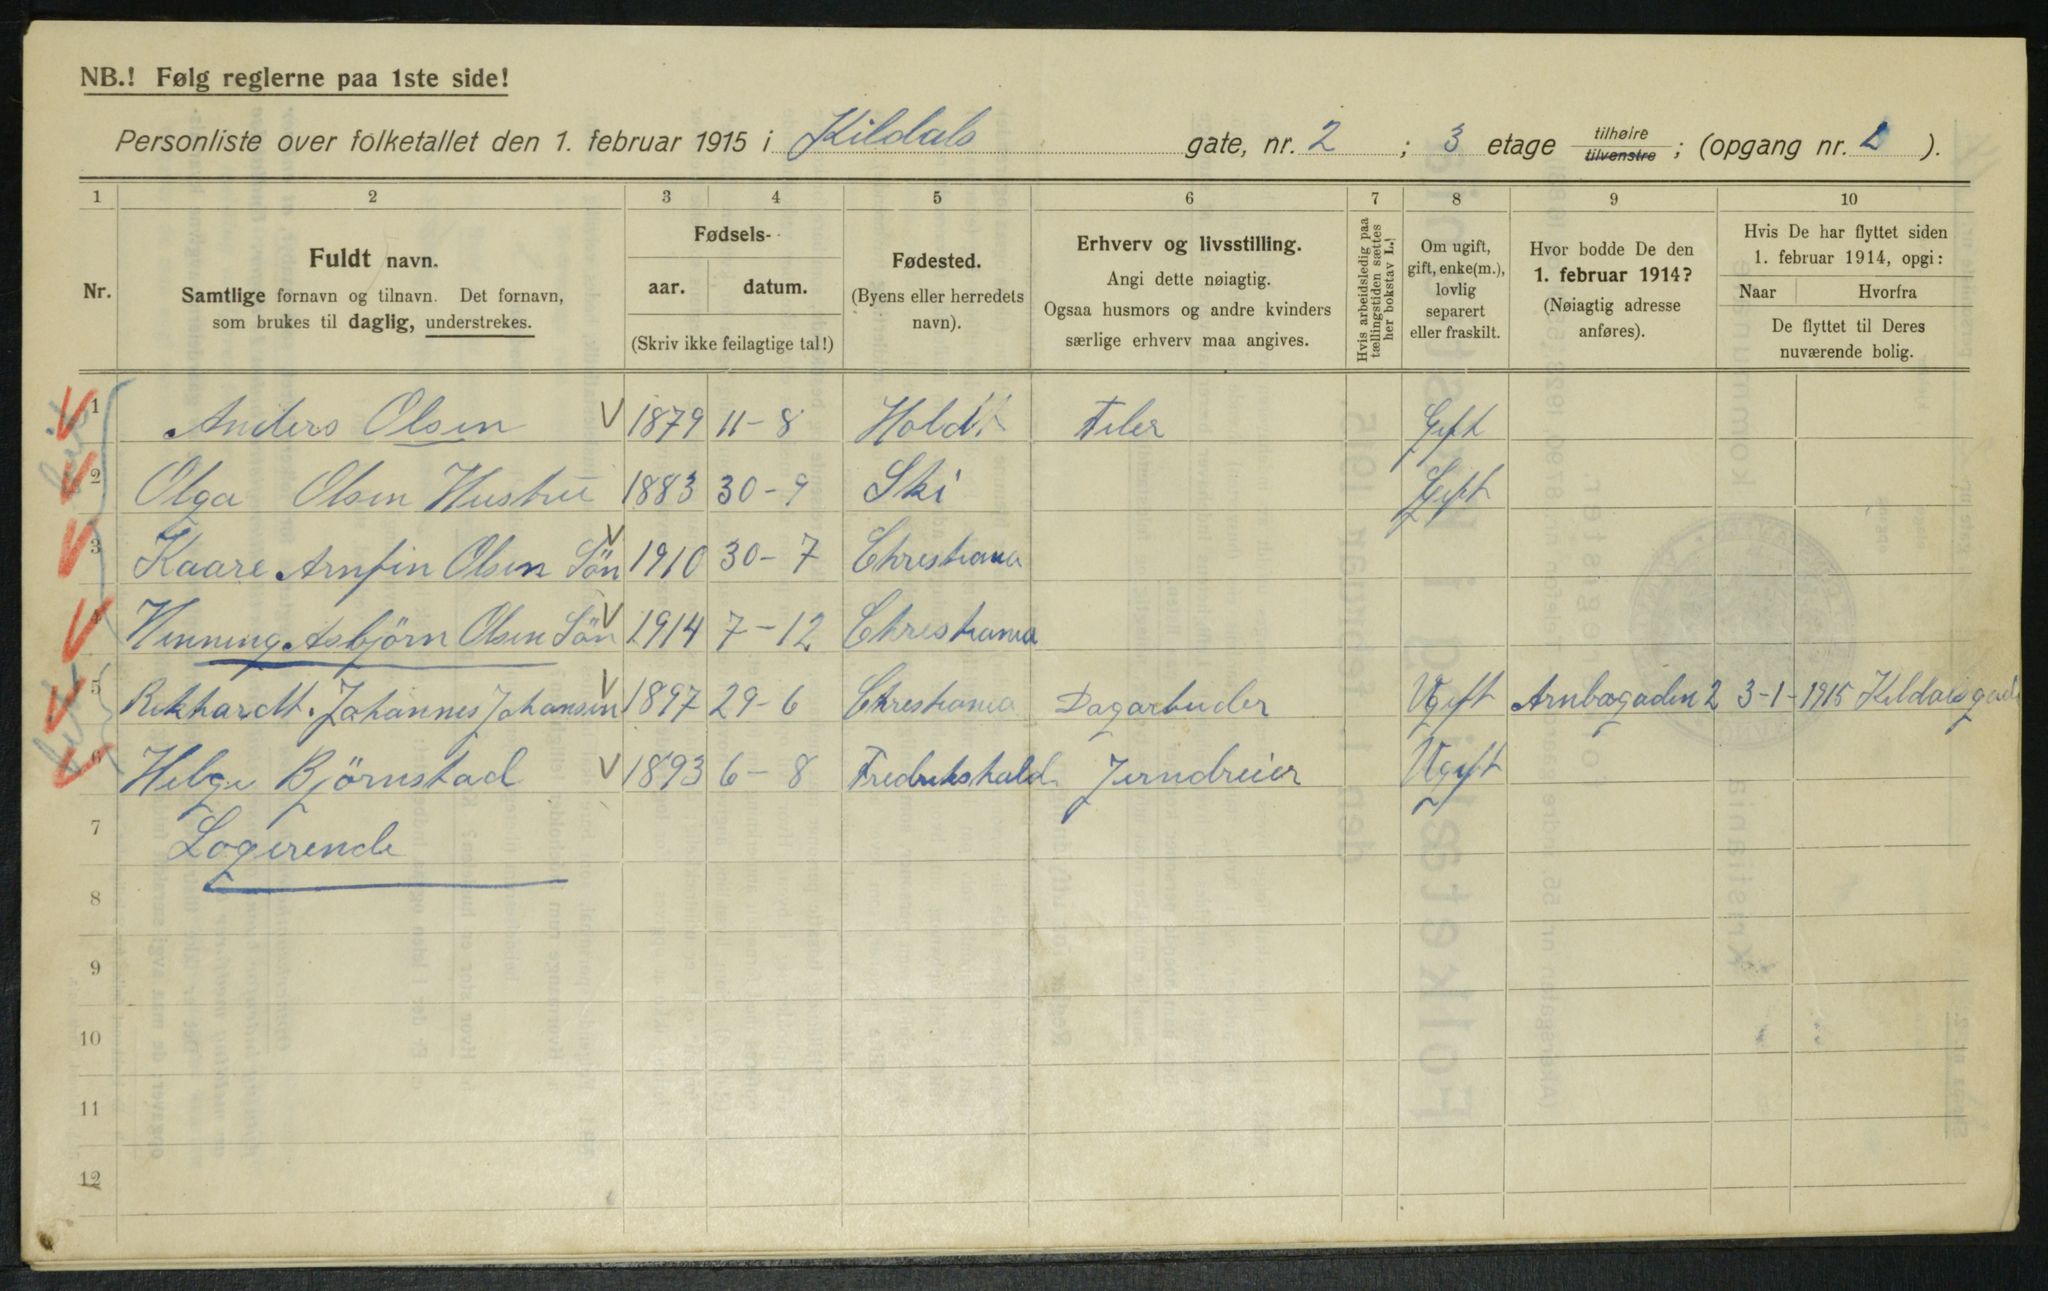 NB.! Følg reglerne paa 1ste side!
Personliste over folketallet den 1. februar 1915 i Kildals gate, nr. 2 ; 3 etage tilhøire tilvenstre ; (opgang nr. 2 ).
1 2 3 4 5 6 7 8 9 10
Nr.
Fuldt navn.
Samtlige fornavn og tilnavn. Det fornavn,
som brukes til daglig, understrekes.
Fødsels-
aar. datum.
(Skriv ikke feilagtige tal!)
Fødested.
(Byens eller herredets
navn).
Erhverv og livsstilling.
Angi dette nøiagtig.
Ogsaa husmors og andre kvinders
særlige erhverv maa angives.
Hvis arbeidsledig paa
tællingstiden sættes
her bokstav L.!
Om ugift,
gift, enke(m.),
lovlig
separert
eller fraskilt.
Hvor bodde De den
1. februar 1914?
(Nøiagtig adresse
anføres).
Hvis De har flyttet siden
1. februar 1914, opgi:
Naar Hvorfra
De flyttet til Deres
nuværende bolig.
1 Anders Olsen 1879 11-8 Holdt Filer Gift
2 Olga Olsen Hustru 1883 30-9 Ski Gift
3 Kaare Arnfin Olsen Sön 1910 30-7 Christiania
4 Henning Asbjörn Olsen Sön 1914 7-12 Christiania
5 Rikhardt. Johannes Johansen 1897 29-6 Christiania Dagarbuder Ugift 2 3-1-1915 Kildals
6 Helge Björnstad 1893 6-8 Fredrikshald Jerndreier Ugift
7 Logerende
8
9
10
11
12